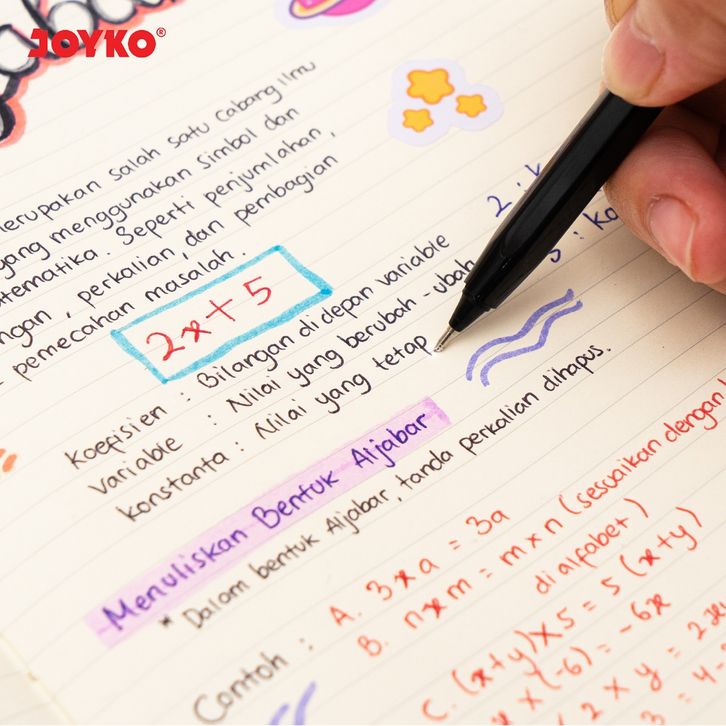 JOYKO®
merupakan salah satu Cabang Ilmu
yang menggunakan simbol dan
matematika. Seperti penjumlahan,
perkalian, dan pembagian
pemecahan masalah.
2x+5
2 :
5 :
koefisien : Bilangan di depan variable
variable : Nilai yang berubah-ubah
konstanta : Nilai yang tetap
Menuliskan Bentuk Aljabar
* Dalam bentuk Aljabar, tanda perkalian dihapus.
Contoh : A. 3xa = 3a
B. nxm = mxn (sesuaikan dengan
di alfabet)
C. (x+y)x5 = 5(x+y)
x(-6) = -6x
2xy =